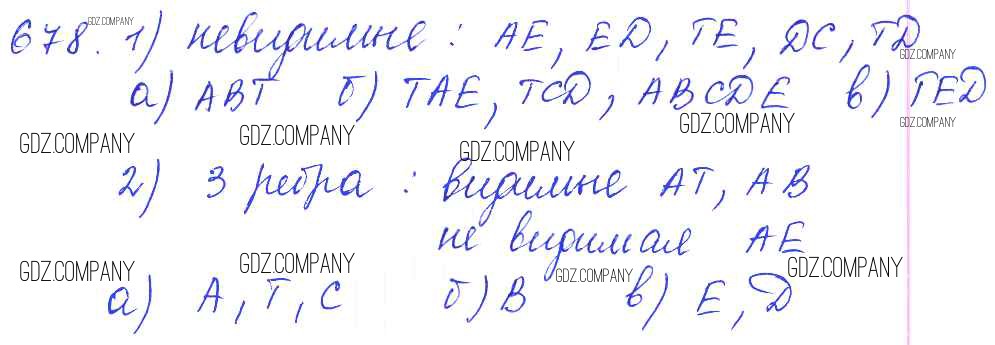 GDZ.COMPANY
678. 1) невидимые : AE, ED, TE, DC, TD
GDZ.COMPANY
а) ABT б) TAE, TCD, ABCDE в) TED
GDZ.COMPANY GDZ.COMPANY GDZ.COMPANY GDZ.COMPANY
GDZ.COMPANY
2) 3 ребра : видимые AT, AB
не видимая AE
GDZ.COMPANY GDZ.COMPANY GDZ.COMPANY GDZ.COMPANY
а) A, T, C б) B в) E, D